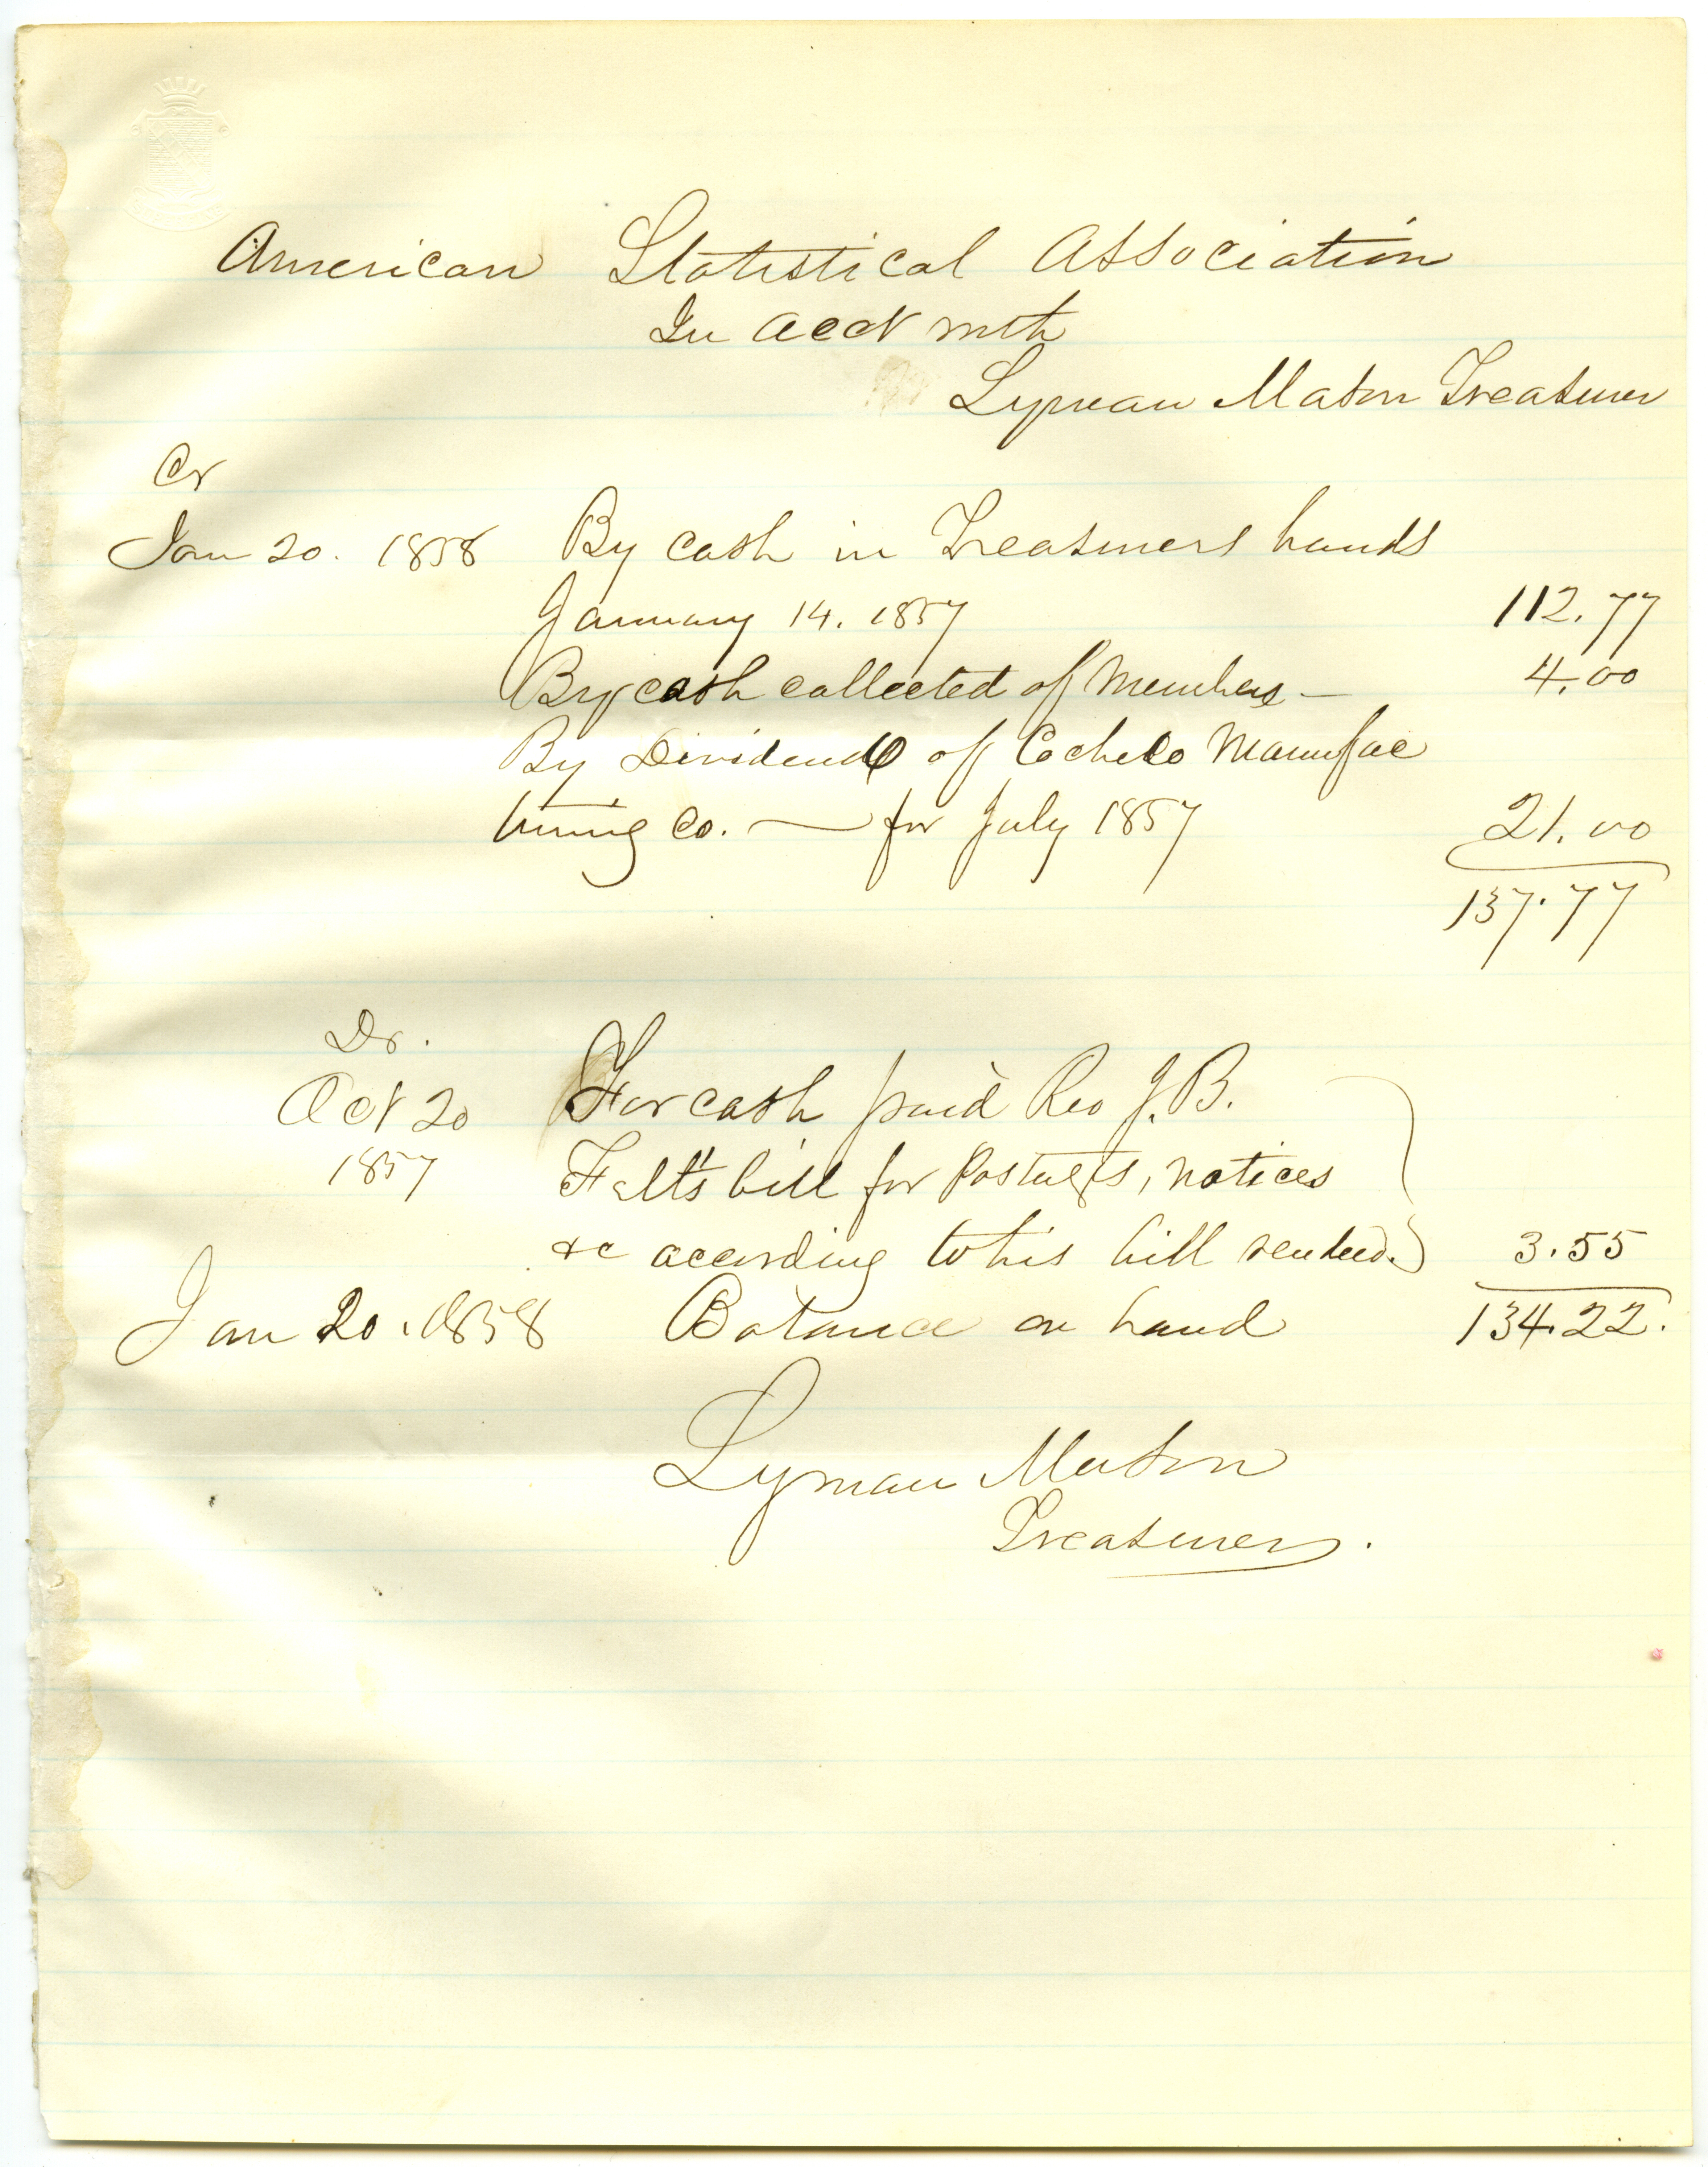 American Statistical Association
In acct with
Lyman Mason Treasurer
Cr
Jan 20. 1858 By cash in Treasurers hands
January 14. 1857 112.77
By cash collected of Members — 4.00
By Dividend of Cocheco Manufac
turing Co. — for July 1857 21.00
137.77
Dr.
Oct 20 For cash paid Rev J. B.
1857 Felt's bill for postages, notices
&c according to his bill rendered. 3.55
Jan 20. 1858 Balance on hand 134.22.
Lyman Mason
Treasurer.